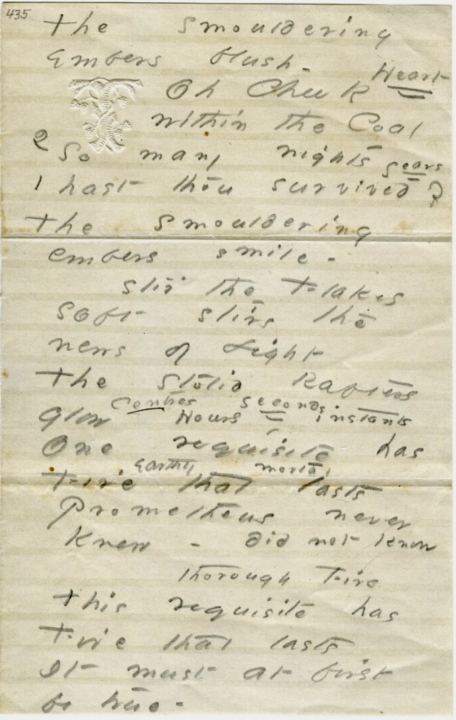 435
The Smouldering
Embers blush -
Oh Cheek Heart
within the Coal
2 So many nights years
1 hast thou survived?
The Smouldering
embers smile -
Stir the Flakes
Soft stirs the
news of Light
The Stolid Rafters
Centres seconds
glow Hours - instants
One requisite has
Earthly mortal
Fire that lasts
Prometheus never
Knew - did not know
thorough Fire
This requisite has
Fire that lasts
It must at first
be true -